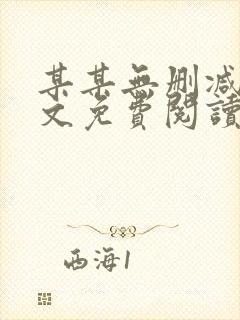 某某無刪減
文免費閱讀
西海1